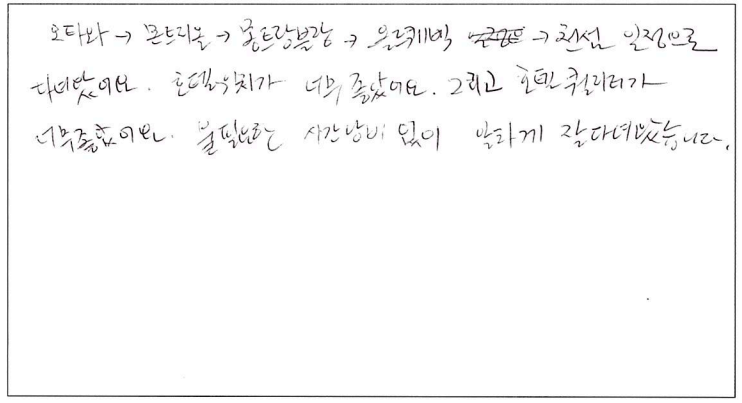 오타와 → 몬트리올 → 몽트랑블랑 → 올드퀘벡 → 천섬 일정으로
다녀왔어요. 호텔위치가 너무 좋았어요. 그리고 호텔 퀄리티가
너무좋았어요. 불필요한 시간낭비 없이 알차게 잘다녀왔습니다.